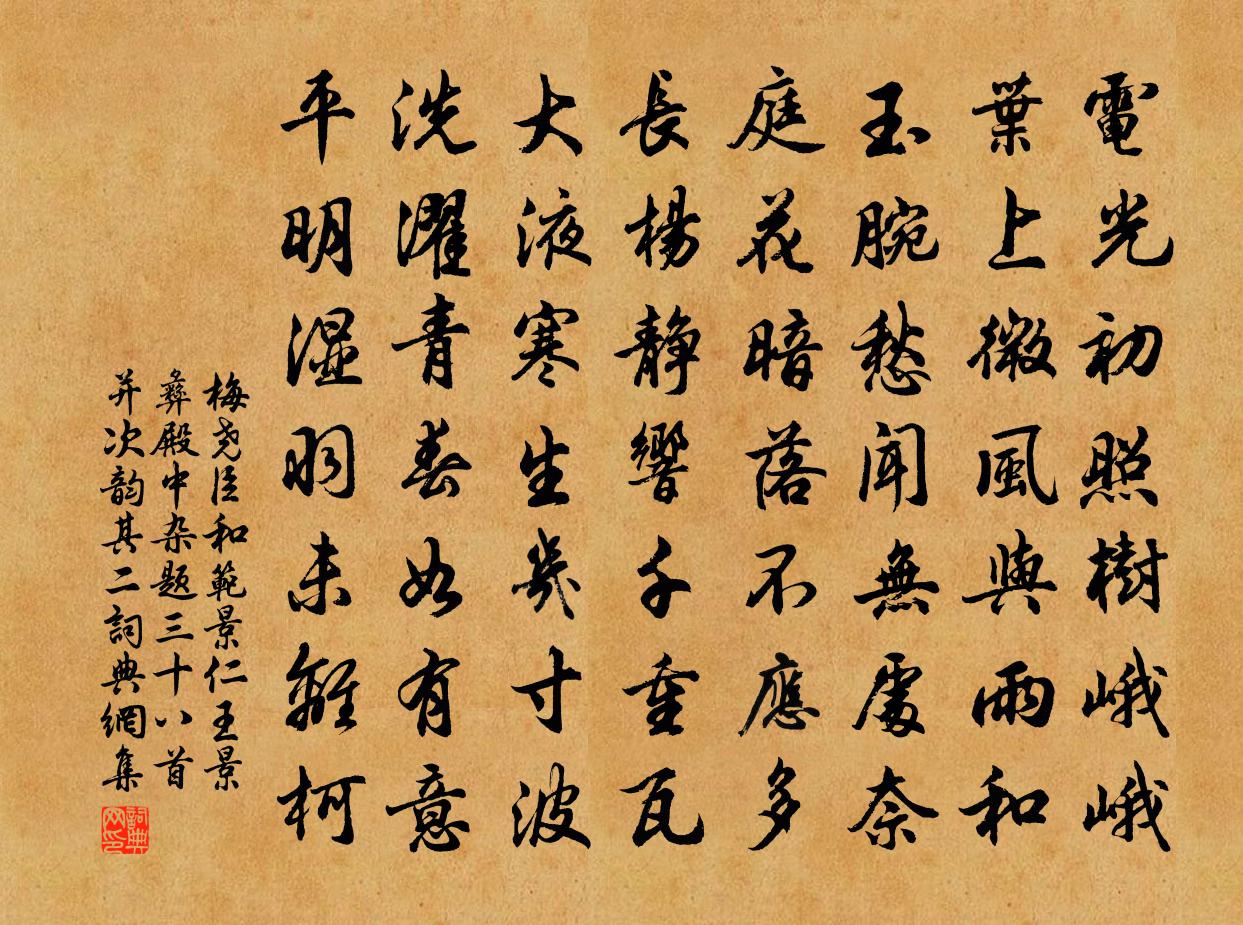 電光初照樹峨峨
葉上微風與雨和
玉腕愁聞無處奈
庭花暗落不應多
長楊静響千重瓦
大液寒生幾寸波
洗濯青春如有意
平明湿羽未離柯
梅尧臣和範景仁王景
彝殿中杂题三十八首
并次韵其二詞典網集
詞典网印